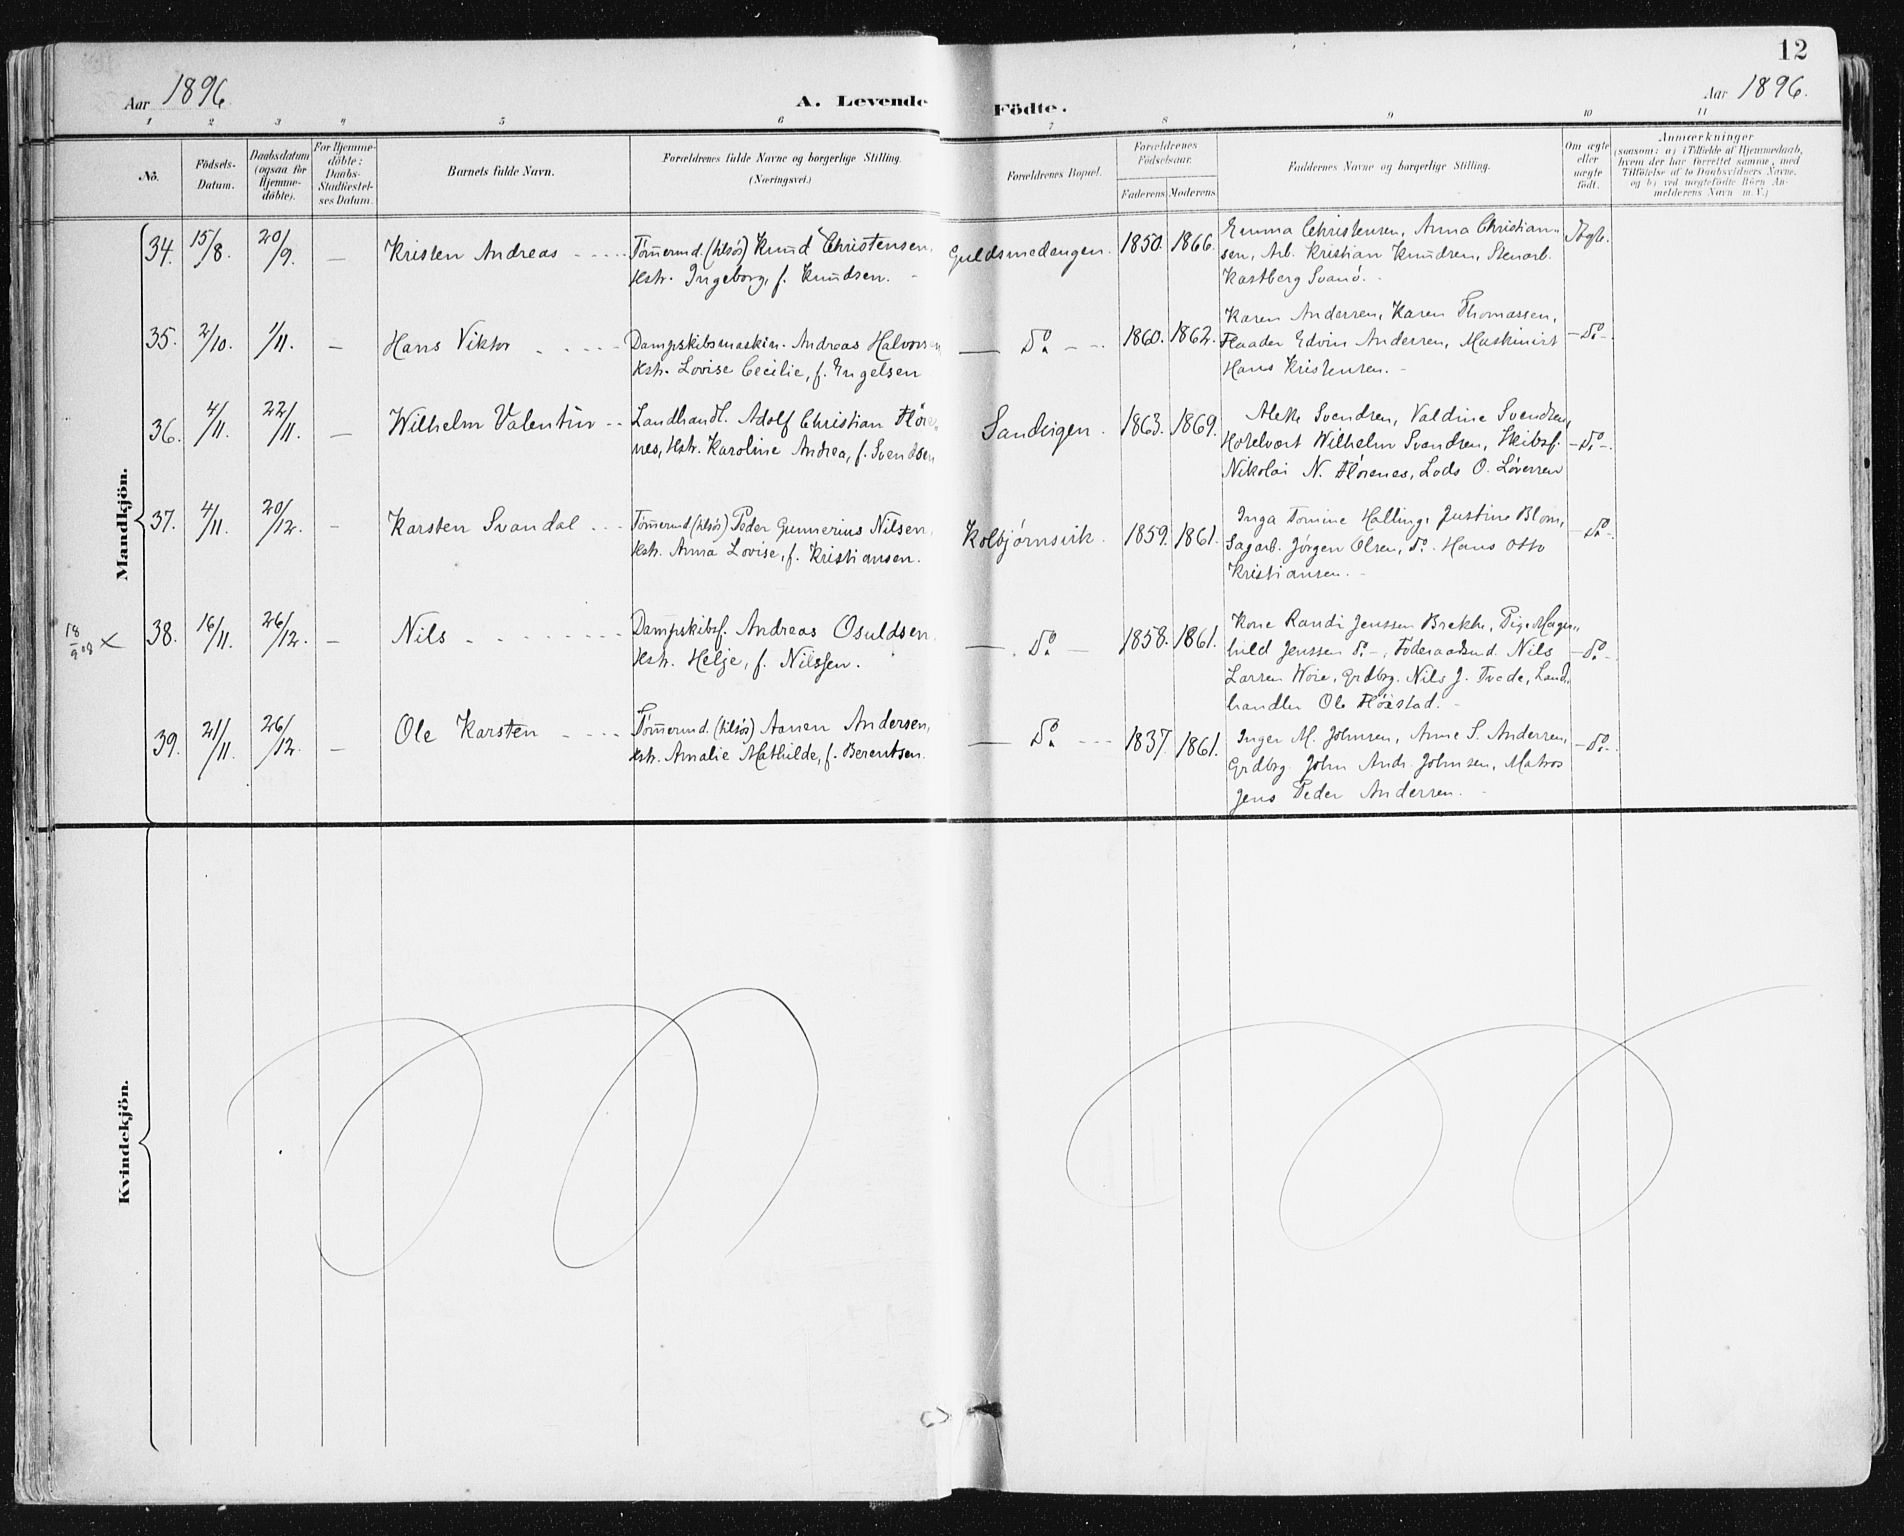 12
Aar 1896.
A. Levende Födte.
Aar 1896.
1 2 3 4 5 6 7 8 9 10 11
No.
Födsels-
Datum.
Daabsdatum
(ogsaa for
Hjemme-
döbte).
For Hjemme-
döbte:
Daabs-
Stadfæstel-
ses Datum.
Barnets fulde Navn.
Forældrenes fulde Navne og borgerlige Stilling.
(Næringsvei.)
Forældrenes Bopæl.
Forældrenes
Födselsaar.
Faderens Moderens
Faddernes Navne og borgerlige Stilling.
Om ægte
eller
uægte
födt.
Anmærkninger
(saasom: a) i Tilfælde af Hjemmedaab,
hvem der har forrettet samme, med
Tilföielse af to Daabsvidners Navne.
og b) ved uægtefödte Börn An-
melderens Navn m. V.)
Mandkjön.
34. 15/8. 20/9. — Kristen Andreas
Tömermd. (tilsös) Knud Christensen,
Hstr. Ingeborg, f. Knudsen.
Guldsmedengen. 1850. 1866.
Emma Christensen, Anna Christian-
sen, Arb. Kristian Knudsen, Stenarb.
Kastberg Svanö.
Ægte.
35. 2/10. 1/11. — Hans Viktor
Dampskibsmaskin. Andreas Halvorsen
Hstr. Lovise Cecilie, f. Engelsen
— Do. — 1860. 1862.
Karen Andersen, Karen Thomassen,
Edvin Andersen, Maskinist
Hans Kristensen.
— Do. —
36. 4/11. 22/11. — Wilhelm Valentin
Landhandl. Adolf Christian Flöre-
nes, Hstr. Karoline Andrea, f. Svendsen
Sandvigen. 1863. 1869.
Alette Svendsen, Valdine Svendsen,
Hotelvært Wilhelm Svendsen, Skibsf.
Nikolai N. Flörenes, Lods O. Löversen
— Do. —
37. 4/11. 20/12. — Karsten Svandal
Tömermd. (tilsös) Peder Gunnerius Nilsen,
Hstr. Anna Lovise, f. Kristiansen.
Kolbjörnsvik. 1859. 1861.
Inga Tomine Halling, Justine Blom,
Sagarb. Jörgen Olsen, Do. Hans Otto
Kristiansen.
— Do. —
18/9 08 ×
38. 16/11. 26/12. — Nils
Dampskibsf. Andreas Osuldsen,
Hstr. Helje, f. Nilssen.
— Do. — 1858. 1861.
Kone Randi Jenssen Brekke, Pige Magn-
hild Jenssen Do. —, Föderaadsmd. Nils
Larsen Woie, Grdbrg. Nils J. Tvede, Land-
handler Ole Flöistad.
— Do. —
39. 21/11. 26/12. — Ole Karsten
Tömermd. (tilsös) Aanen Andersen,
Hstr. Amalie Mathilde, f. Berentsen.
— Do. — 1837. 1861.
Inger M. Johnsen, Anne S. Andersen,
Grdbrg. John Andr. Johnsen, Matros
Jens Peder Andersen.
— Do. —
Kvindekjön.